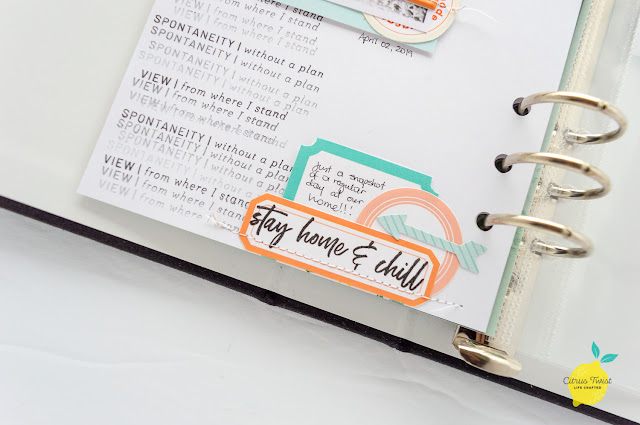 made
April 02, 2019
SPONTANEITY | without a plan
SPONTANEITY | without a plan
VIEW | from where I stand
VIEW | from where I stand
SPONTANEITY | without a plan
SPONTANEITY | without a plan
VIEW | from where I stand
VIEW | from where I stand
SPONTANEITY | without a plan
SPONTANEITY | without a plan
SPONTANEITY | without a plan
VIEW | from where I stand
VIEW | from where I stand
VIEW | from where I stand
Just a snapshot
of a regular
day at our
home!!!
stay home & chill
Citrus Twist
LIFE CRAFTED